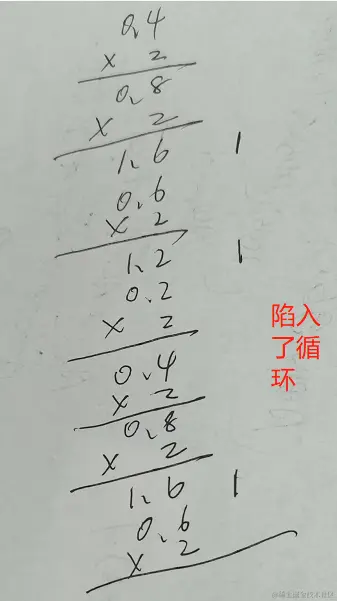 0.4
× 2
0.8
× 2
1.6 1
0.6
× 2
1.2 1
0.2
× 2
0.4
× 2
0.8
× 2
1.6 1
0.6
× 2
陷入
了循
环
@稀土掘金技术社区